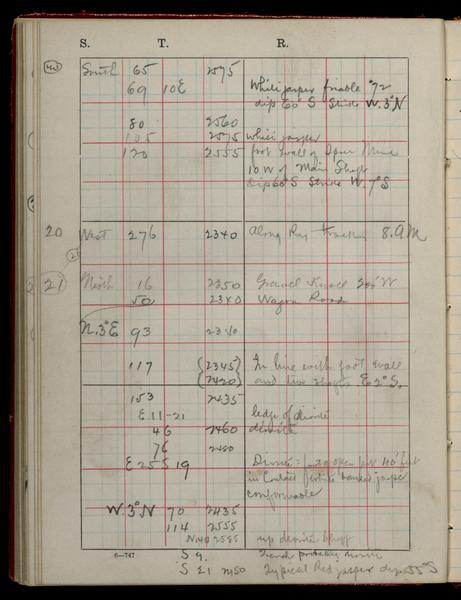 S. T. R.
South 65 2575
69 10E White jasper friable "72
dip 60° S Strike W.3°N
80 2560
105 2575 white jasper
120 2555 foot wall of Mine
10 W of Main Shaft
dip 60° S Strike W. 7° S
20 West 276 2340 Along Ry track 8. A M
21 North 16 2350 Gravel W
50 2340 Wagon Road
N.3°E 93 2340
117 (2345) In line with foot wall
(2420) and two shafts E 2° S.
153 2435
E.11-21 ledge of diorite
46 2460 diorite
76 2480
E 25 S 19 Diorite 40 feet
in Contact banded jasper
conformable
W.3°N 70 2435
114 2555
N 140 2585 up diorite bluff
6-747 S 9. probably diorite
S 21 2450 Typical Red jasper dip 55° S